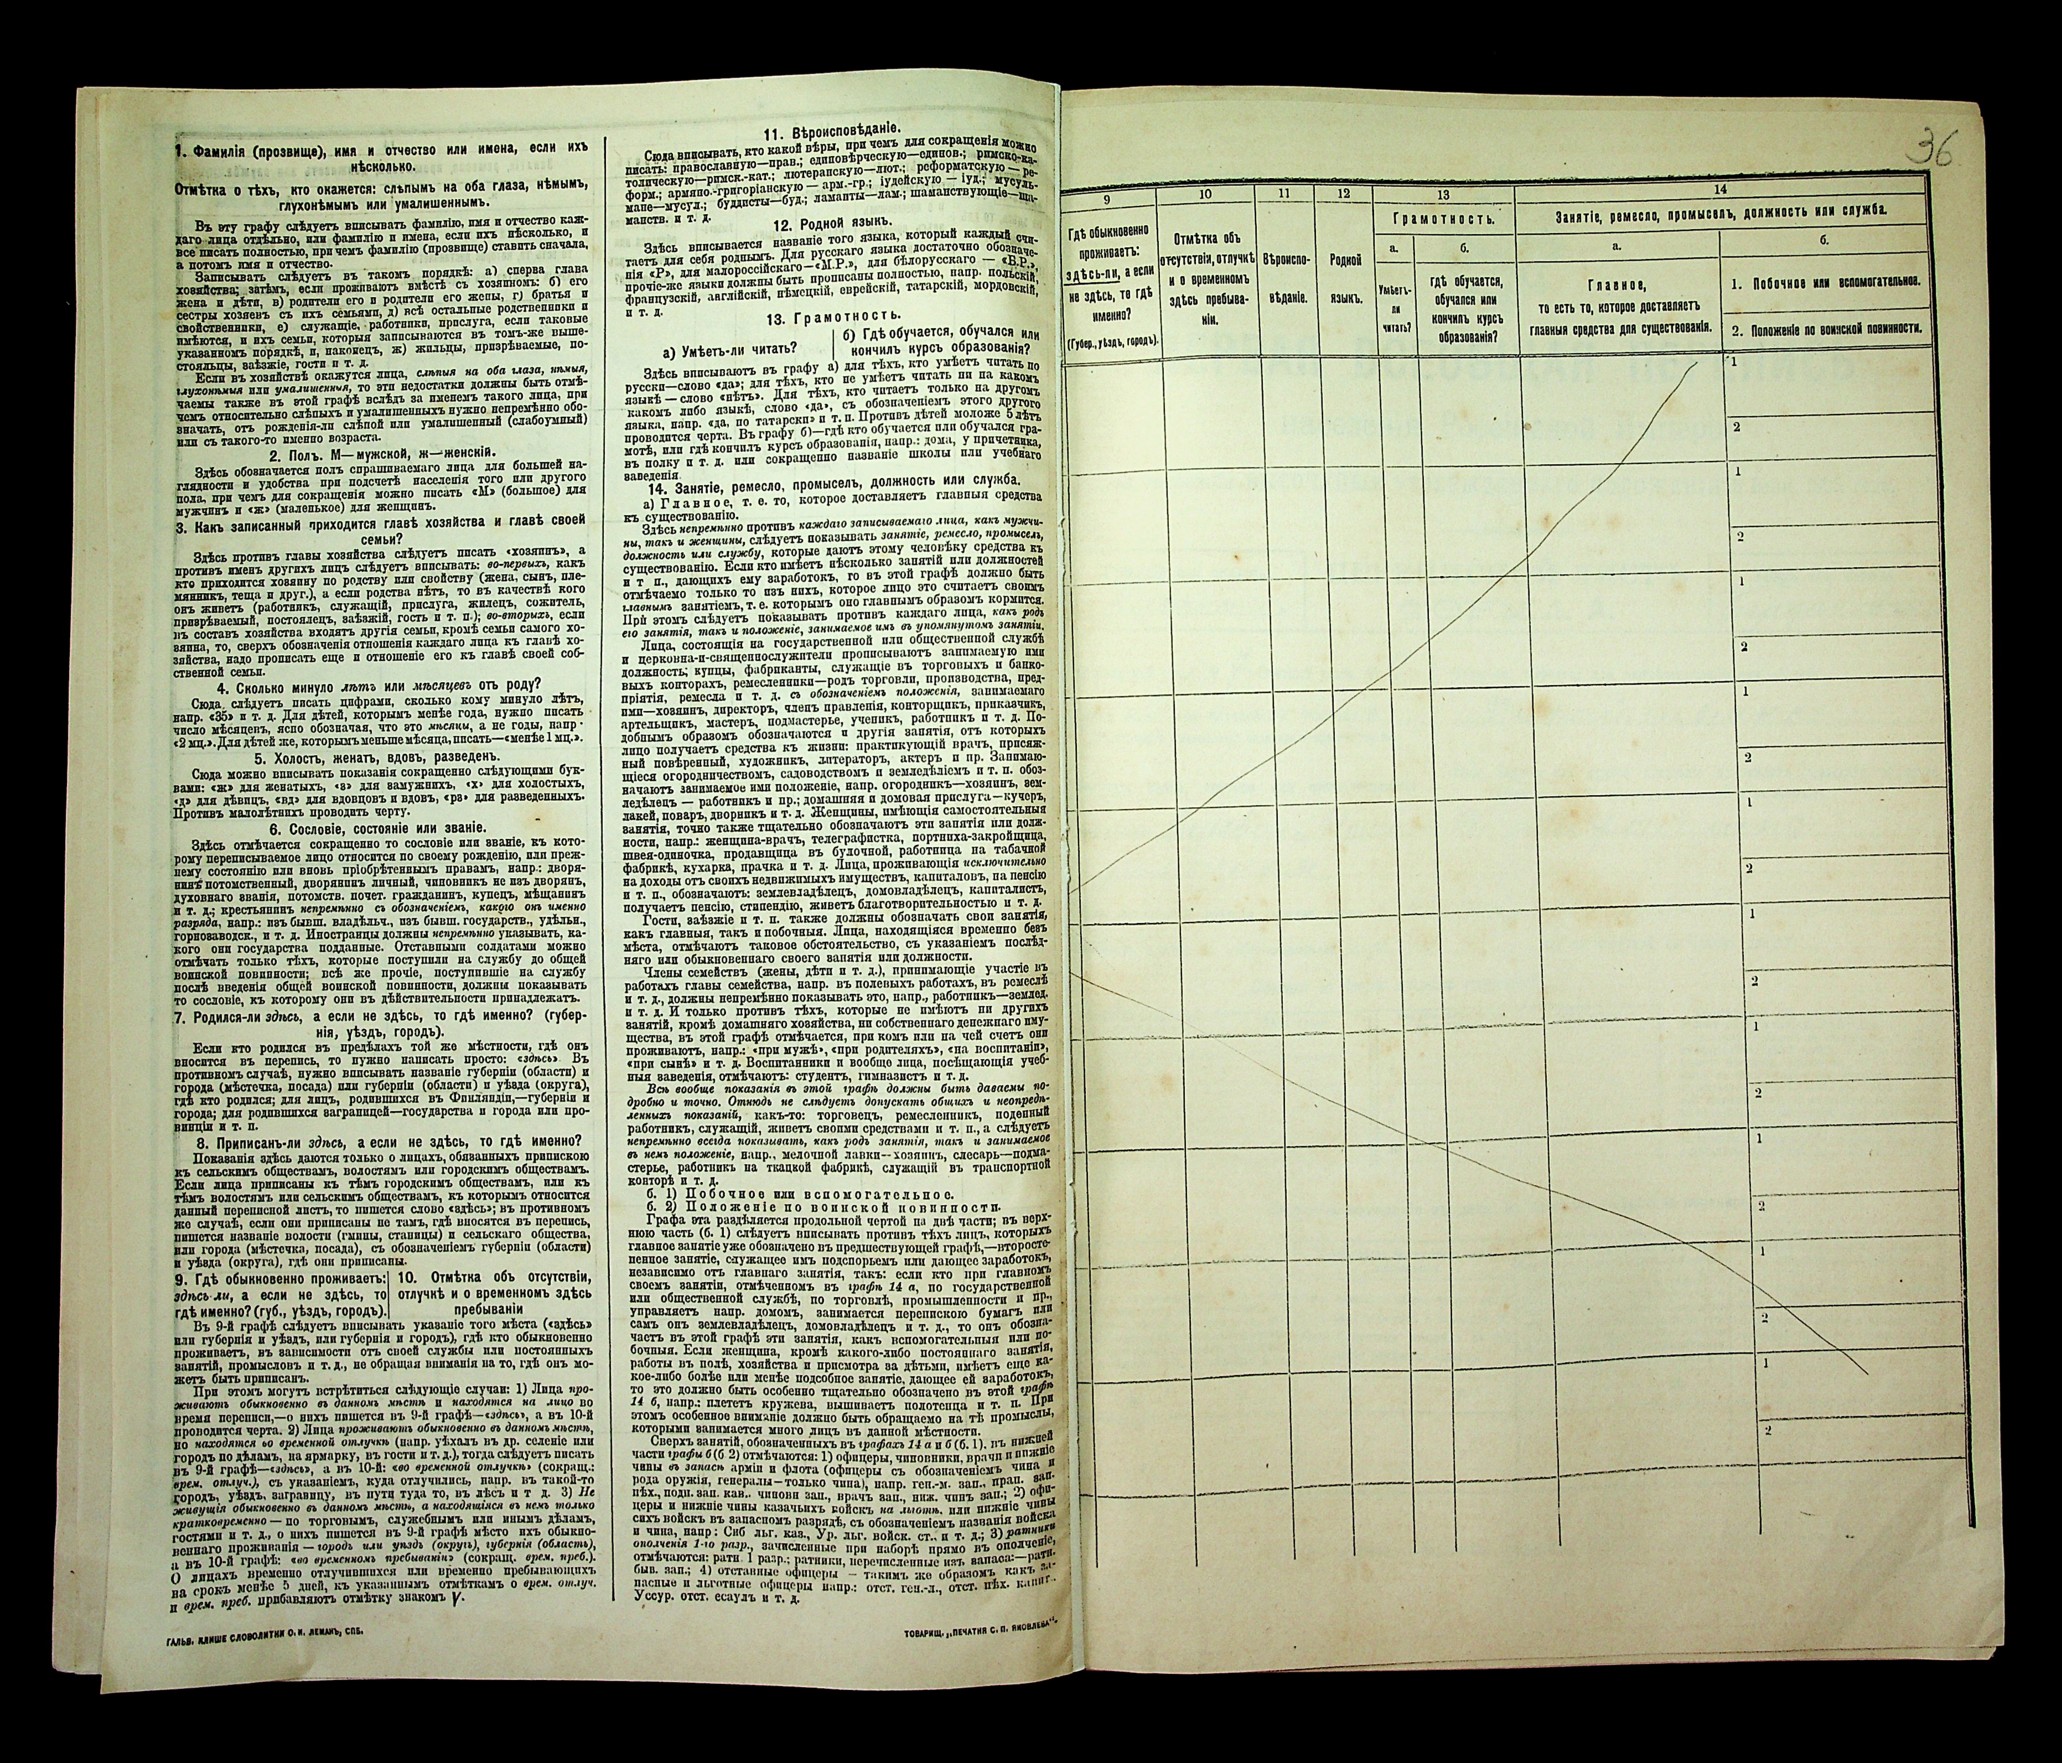 1. Фамилія (прозвище), имя и отчество или имена, если ихъ
нѣсколько.
Отмѣтка о тѣхъ, кто окажется: слѣпымъ на оба глаза, нѣмымъ,
глухонѣмымъ или умалишеннымъ.
Въ эту графу слѣдуетъ вписывать фамилію, имя и отчество каж-
даго лица отдѣльно, или фамилію и имена, если ихъ нѣсколько, и
все писать полностью, при чемъ фамилію (прозвище) ставить сначала,
а потомъ имя и отчество.
Записывать слѣдуетъ въ такомъ порядкѣ: а) сперва глава
хозяйства; затѣмъ, если проживаютъ вмѣстѣ съ хозяиномъ: б) его
жена и дѣти, в) родители его и родители его жены, г) братья и
сестры хозяевъ съ ихъ семьями, д) всѣ остальные родственники и
свойственники, е) служащіе, работники, прислуга, если таковые
имѣются, и ихъ семьи, которыя записываются въ томъ-же выше-
указанномъ порядкѣ, и, наконецъ, ж) жильцы, призрѣваемые, по-
стояльцы, заѣзжіе, гости и т. д.
Если въ хозяйствѣ окажутся лица, слѣпыя на оба глаза, нѣмыя,
глухонѣмыя или умалишенныя, то эти недостатки должны быть отмѣ-
чаемы также въ этой графѣ вслѣдъ за именемъ такого лица, при
чемъ относительно слѣпыхъ и умалишенныхъ нужно непремѣнно обо-
значать, отъ рожденія-ли слѣпой или умалишенный (слабоумный)
или съ такого-то именно возраста.
2. Полъ. М—мужской, ж—женскій.
Здѣсь обозначается полъ спрашиваемаго лица для большей на-
глядности и удобства при подсчетѣ населенія того или другого
пола, при чемъ для сокращенія можно писать «М» (большое) для
мужчинъ и «ж» (маленькое) для женщинъ.
3. Какъ записанный приходится главѣ хозяйства и главѣ своей
семьи?
Здѣсь противъ главы хозяйства слѣдуетъ писать «хозяинъ», а
противъ именъ другихъ лицъ слѣдуетъ вписывать: во-первыхъ, какъ
кто приходится хозяину по родству или свойству (жена, сынъ, пле-
мянникъ, теща и друг.), а если родства нѣтъ, то въ качествѣ кого
онъ живетъ (работникъ, служащій, прислуга, жилецъ, сожитель,
призрѣваемый, постоялецъ, заѣзжій, гость и т. п.); во-вторыхъ, если
въ составъ хозяйства входятъ другія семьи, кромѣ семьи самого хо-
зяина, то, сверхъ обозначенія отношенія каждаго лица къ главѣ хо-
зяйства, надо прописать еще и отношеніе его къ главѣ своей соб-
ственной семьи.
4. Сколько минуло лѣтъ или мѣсяцевъ отъ роду?
Сюда слѣдуетъ писать цифрами, сколько кому минуло лѣтъ,
напр. «35» и т. д. Для дѣтей, которымъ менѣе года, нужно писать
число мѣсяцевъ, ясно обозначая, что это мѣсяцы, а не годы, напр.
«2 мц.». Для дѣтей же, которымъ меньше мѣсяца, писать—«менѣе 1 мц.».
5. Холостъ, женатъ, вдовъ, разведенъ.
Сюда можно вписывать показанія сокращенно слѣдующими бук-
вами: «ж» для женатыхъ, «з» для замужнихъ, «х» для холостыхъ,
«д» для дѣвицъ, «вд» для вдовцовъ и вдовъ, «рз» для разведенныхъ.
Противъ малолѣтнихъ проводить черту.
6. Сословіе, состояніе или званіе.
Здѣсь отмѣчается сокращенно то сословіе или званіе, къ кото-
рому переписываемое лицо относится по своему рожденію, или преж-
нему состоянію или вновь пріобрѣтеннымъ правамъ, напр.: дворя-
нинъ потомственный, дворянинъ личный, чиновникъ не изъ дворянъ,
духовнаго званія, потомств. почет. гражданинъ, купецъ, мѣщанинъ
и т. д.; крестьянинъ непремѣнно съ обозначеніемъ, какого онъ именно
разряда, напр.: изъ бывш. владѣльч., изъ бывш. государств., удѣльн.,
горнозаводск., и т. д. Иностранцы должны непремѣнно указывать, ка-
кого они государства подданные. Отставными солдатами можно
отмѣчать только тѣхъ, которые поступили на службу до общей
воинской повинности; всѣ же прочіе, поступившіе на службу
послѣ введенія общей воинской повинности, должны показывать
то сословіе, къ которому они въ дѣйствительности принадлежатъ.
7. Родился-ли здѣсь, а если не здѣсь, то гдѣ именно? (губер-
нія, уѣздъ, городъ).
Если кто родился въ предѣлахъ той же мѣстности, гдѣ онъ
вносится въ перепись, то нужно написать просто: «здѣсь» Въ
противномъ случаѣ, нужно вписывать названіе губерніи (области) и
города (мѣстечка, посада) или губерніи (области) и уѣзда (округа),
гдѣ кто родился; для лицъ, родившихся въ Финляндіи,—губерніи и
города; для родившихся заграницей—государства и города или про-
винціи и т. п.
8. Приписанъ-ли здѣсь, а если не здѣсь, то гдѣ именно?
Показанія здѣсь даются только о лицахъ, обязанныхъ припискою
къ сельскимъ обществамъ, волостямъ или городскимъ обществамъ.
Если лица приписаны къ тѣмъ городскимъ обществамъ, или къ
тѣмъ волостямъ или сельскимъ обществамъ, къ которымъ относится
данный переписной листъ, то пишется слово «здѣсь»; въ противномъ
же случаѣ, если они приписаны не тамъ, гдѣ вносятся въ перепись,
пишется названіе волости (гмины, станицы) и сельскаго общества,
или города (мѣстечка, посада), съ обозначеніемъ губерніи (области)
и уѣзда (округа), гдѣ они приписаны.
9. Гдѣ обыкновенно проживаетъ:
здѣсь-ли, а если не здѣсь, то
гдѣ именно? (губ., уѣздъ, городъ).
10. Отмѣтка объ отсутствіи,
отлучкѣ и о временномъ здѣсь
пребываніи
Въ 9-й графѣ слѣдуетъ вписывать указаніе того мѣста («здѣсь»
или губернія и уѣздъ, или губернія и городъ), гдѣ кто обыкновенно
проживаетъ, въ зависимости отъ своей службы или постоянныхъ
занятій, промысловъ и т. д., не обращая вниманія на то, гдѣ онъ мо-
жетъ быть приписанъ.
При этомъ могутъ встрѣтиться слѣдующіе случаи: 1) Лица про-
живаютъ обыкновенно въ данномъ мѣстѣ и находятся на лицо во
время переписи,—о нихъ пишется въ 9-й графѣ—«здѣсь», а въ 10-й
проводится черта. 2) Лица проживаютъ обыкновенно въ данномъ мѣстѣ,
но находятся во временной отлучкѣ (напр. уѣхалъ въ др. селеніе или
городъ по дѣламъ, на ярмарку, въ гости и т. д.), тогда слѣдуетъ писать
въ 9-й графѣ—«здѣсь», а въ 10-й: «во временной отлучкѣ» (сокращ.:
врем. отлуч.), съ указаніемъ, куда отлучились, напр. въ такой-то
городъ, уѣздъ, заграницу, въ пути туда то, въ лѣсъ и т д. 3) Не
живущія обыкновенно въ данномъ мѣстѣ, а находящіяся въ немъ только
кратковременно — по торговымъ, служебнымъ или инымъ дѣламъ,
гостями и т. д., о нихъ пишется въ 9-й графѣ мѣсто ихъ обыкно-
веннаго проживанія — городъ или уѣздъ (округъ), губернія (область),
а въ 10-й графѣ: «во временномъ пребываніи» (сокращ. врем. преб.).
О лицахъ временно отлучившихся или временно пребывающихъ
на срокъ менѣе 5 дней, къ указаннымъ отмѣткамъ о врем. отлуч.
и врем. преб. прибавляютъ отмѣтку знакомъ V.
ГАЛЬВ. КЛИШЕ СЛОВОЛИТНИ О. И. ЛЕМАНЪ, СПБ.
11. Вѣроисповѣданіе.
Сюда вписывать, кто какой вѣры, при чемъ для сокращенія можно
писать: православную—прав.; единовѣрческую—единов.; римско-ка-
толическую—римск.-кат.; лютеранскую—лют.; реформатскую — ре-
форм.; армяно-григоріанскую — арм.-гр.; іудейскую — іуд.; мусуль-
мане—мусул.; буддисты—буд.; ламаиты—лам.; шаманствующіе—ша-
манств. и т. д.
12. Родной языкъ.
Здѣсь вписывается названіе того языка, который каждый счи-
таетъ для себя роднымъ. Для русскаго языка достаточно обозначе-
нія «Р», для малороссійскаго—«М.Р.», для бѣлорусскаго — «Б.Р.»,
прочіе-же языки должны быть прописаны полностью, напр. польскій,
французскій, англійскій, нѣмецкій, еврейскій, татарскій, мордовскій,
и т. д.
13. Грамотность.
а) Умѣетъ-ли читать?
б) Гдѣ обучается, обучался или
кончилъ курсъ образованія?
Здѣсь вписываютъ въ графу а) для тѣхъ, кто умѣетъ читать по
русски—слово «да»; для тѣхъ, кто не умѣетъ читать ни на какомъ
языкѣ — слово «нѣтъ». Для тѣхъ, кто читаетъ только на другомъ
какомъ либо языкѣ, слово «да», съ обозначеніемъ этого другого
языка, напр. «да, по татарски» и т. п. Противъ дѣтей моложе 5 лѣтъ
проводится черта. Въ графу б)—гдѣ кто обучается или обучался гра-
мотѣ, или гдѣ кончилъ курсъ образованія, напр.: дома, у причетника,
въ полку и т. д. или сокращенно названіе школы или учебнаго
заведенія
14. Занятіе, ремесло, промыселъ, должность или служба.
а) Главное, т. е. то, которое доставляетъ главныя средства
къ существованію.
Здѣсь непремѣнно противъ каждаго записываемаго лица, какъ мужчи-
ны, такъ и женщины, слѣдуетъ показывать занятіе, ремесло, промыселъ,
должность или службу, которые даютъ этому человѣку средства къ
существованію. Если кто имѣетъ нѣсколько занятій или должностей
и т п., дающихъ ему заработокъ, то въ этой графѣ должно быть
отмѣчаемо только то изъ нихъ, которое лицо это считаетъ своимъ
главнымъ занятіемъ, т. е. которымъ оно главнымъ образомъ кормится.
При этомъ слѣдуетъ показывать противъ каждаго лица, какъ родъ
его занятія, такъ и положеніе, занимаемое имъ въ упомянутомъ занятіи.
Лица, состоящія на государственной или общественной службѣ
и церковно-и-священнослужители прописываютъ занимаемую ими
должность; купцы, фабриканты, служащіе въ торговыхъ и банко-
выхъ конторахъ, ремесленники—родъ торговли, производства, пред-
пріятія, ремесла и т. д. съ обозначеніемъ положенія, занимаемаго
ими—хозяинъ, директоръ, членъ правленія, конторщикъ, приказчикъ,
артельщикъ, мастеръ, подмастерье, ученикъ, работникъ и т. д. По-
добнымъ образомъ обозначаются и другія занятія, отъ которыхъ
лицо получаетъ средства къ жизни: практикующій врачъ, присяж-
ный повѣренный, художникъ, литераторъ, актеръ и пр. Занимаю-
щіеся огородничествомъ, садоводствомъ и земледѣліемъ и т. п. обоз-
начаютъ занимаемое ими положеніе, напр. огородникъ—хозяинъ, зем-
ледѣлецъ — работникъ и пр.; домашняя и домовая прислуга—кучеръ,
лакей, поваръ, дворникъ и т. д. Женщины, имѣющія самостоятельныя
занятія, точно также тщательно обозначаютъ эти занятія или долж-
ности, напр.: женщина-врачъ, телеграфистка, портниха-закройщица,
швея-одиночка, продавщица въ булочной, работница на табачной
фабрикѣ, кухарка, прачка и т. д. Лица, проживающія исключительно
на доходы отъ своихъ недвижимыхъ имуществъ, капиталовъ, на пенсію
и т. п., обозначаютъ: землевладѣлецъ, домовладѣлецъ, капиталистъ,
получаетъ пенсію, стипендію, живетъ благотворительностью и т. д.
Гости, заѣзжіе и т. п. также должны обозначать свои занятія,
какъ главныя, такъ и побочныя. Лица, находящіяся временно безъ
мѣста, отмѣчаютъ таковое обстоятельство, съ указаніемъ послѣд-
няго или обыкновеннаго своего занятія или должности.
Члены семействъ (жены, дѣти и т. д.), принимающіе участіе въ
работахъ главы семейства, напр. въ полевыхъ работахъ, въ ремеслѣ
и т. д., должны непремѣнно показывать это, напр., работникъ—землед.
и т. д. И только противъ тѣхъ, которые не имѣютъ ни другихъ
занятій, кромѣ домашняго хозяйства, ни собственнаго денежнаго иму-
щества, въ этой графѣ отмѣчается, при комъ или на чей счетъ они
проживаютъ, напр.: «при мужѣ», «при родителяхъ», «на воспитаніи»,
«при сынѣ» и т. д. Воспитанники и вообще лица, посѣщающія учеб-
ныя заведенія, отмѣчаютъ: студентъ, гимназистъ и т. д.
Всѣ вообще показанія въ этой графѣ должны быть даваемы по-
дробно и точно. Отнюдь не слѣдуетъ допускать общихъ и неопредѣ-
ленныхъ показаній, какъ-то: торговецъ, ремесленникъ, поденный
работникъ, служащій, живетъ своими средствами и т. п., а слѣдуетъ
непремѣнно всегда показывать, какъ родъ занятія, такъ и занимаемое
въ немъ положеніе, напр., мелочной лавки—хозяинъ, слесарь—подма-
стерье, работникъ на ткацкой фабрикѣ, служащій въ транспортной
конторѣ и т. д.
б. 1) Побочное или вспомогательное.
б. 2) Положеніе по воинской повинности.
Графа эта раздѣляется продольной чертой на двѣ части; въ верх-
нюю часть (б. 1) слѣдуетъ вписывать противъ тѣхъ лицъ, которыхъ
главное занятіе уже обозначено въ предшествующей графѣ,—второсте-
пенное занятіе, служащее имъ подспорьемъ или дающее заработокъ,
независимо отъ главнаго занятія, такъ: если кто при главномъ
своемъ занятіи, отмѣченномъ въ графѣ 14 а, по государственной
или общественной службѣ, по торговлѣ, промышленности и пр.,
управляетъ напр. домомъ, занимается перепискою бумагъ или
самъ онъ землевладѣлецъ, домовладѣлецъ и т. д., то онъ обозна-
чаетъ въ этой графѣ эти занятія, какъ вспомогательныя или по-
бочныя. Если женщина, кромѣ какого-либо постояннаго занятія,
работы въ полѣ, хозяйства и присмотра за дѣтьми, имѣетъ еще ка-
кое-либо болѣе или менѣе подсобное занятіе, дающее ей заработокъ,
то это должно быть особенно тщательно обозначено въ этой графѣ
14 б, напр.: плететъ кружева, вышиваетъ полотенца и т. п. При
этомъ особенное вниманіе должно быть обращаемо на тѣ промыслы,
которыми занимается много лицъ въ данной мѣстности.
Сверхъ занятій, обозначенныхъ въ графахъ 14 а и б (б. 1). въ нижней
части графы б (б 2) отмѣчаются: 1) офицеры, чиновники, врачи и нижніе
чины въ запасѣ арміи и флота (офицеры съ обозначеніемъ чина и
рода оружія, генералы—только чина), напр. ген.-м. зап., прап. зап.
пѣх., подп. зап. кав.. чиновн зап., врачъ зап., ниж. чинъ зап.; 2) офи-
церы и нижніе чины казачьихъ войскъ на льготѣ. или нижніе чины
сихъ войскъ въ запасномъ разрядѣ, съ обозначеніемъ названія войска
и чина, напр: Сиб льг. каз., Ур. льг. войск. ст., и т. д.; 3) ратники
ополченія 1-го разр., зачисленные при наборѣ прямо въ ополченіе,
отмѣчаются: ратн. 1 разр.; ратники, перечисленные изъ запаса:—ратн.
быв. зап.; 4) отставные офицеры — такимъ же образомъ какъ за-
пасные и льготные офицеры напр.: отст. ген.-л., отст. пѣх. капит.
Уссур. отст. есаулъ и т. д.
ТОВАРИЩ. „ПЕЧАТНЯ С. П. ЯКОВЛЕВА“.
36
9
10
11
12
13
14
Гдѣ обыкновенно
проживаетъ:
здѣсь-ли, а если
не здѣсь, то гдѣ
именно?
(Губер., уѣздъ, городъ).
Отмѣтка объ
отсутствіи, отлучкѣ
и о временномъ
здѣсь пребыва-
ніи.
Вѣроиспо-
вѣданіе.
Родной
языкъ.
Грамотность.
а.
Умѣетъ-
ли
читать?
б.
гдѣ обучается,
обучался или
кончилъ курсъ
образованія?
Занятіе, ремесло, промыселъ, должность или служба.
а.
Главное,
то есть то, которое доставляетъ
главныя средства для существованія.
б.
1. Побочное или вспомогательное.
2. Положеніе по воинской повинности.
1
2
1
2
1
2
1
2
1
2
1
2
1
2
1
2
1
2
1
2